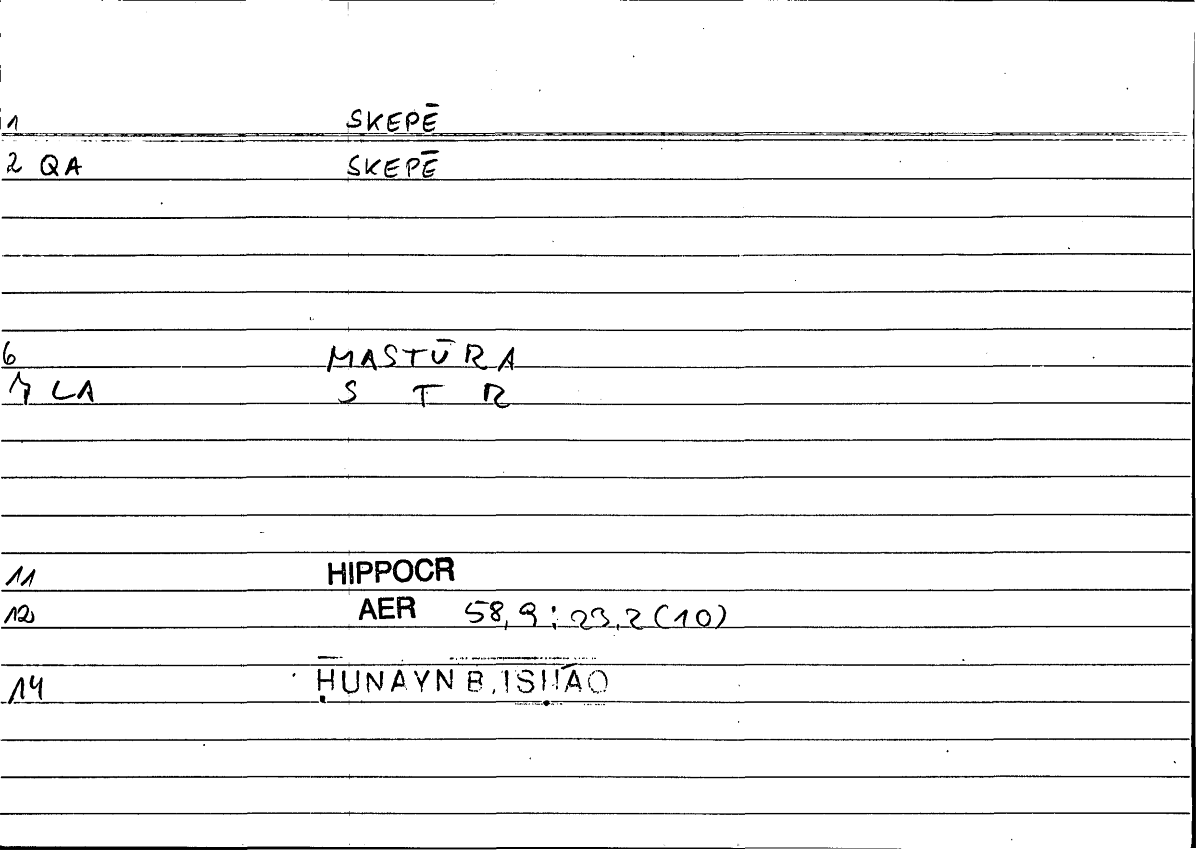 1 SKEPĒ
2 QA SKEPĒ
6 MASTŪRA
7 LA S T R
11 HIPPOCR
12 AER 58,9; 23,2 (10)
14 ḤUNAYN B. ISḤĀQ